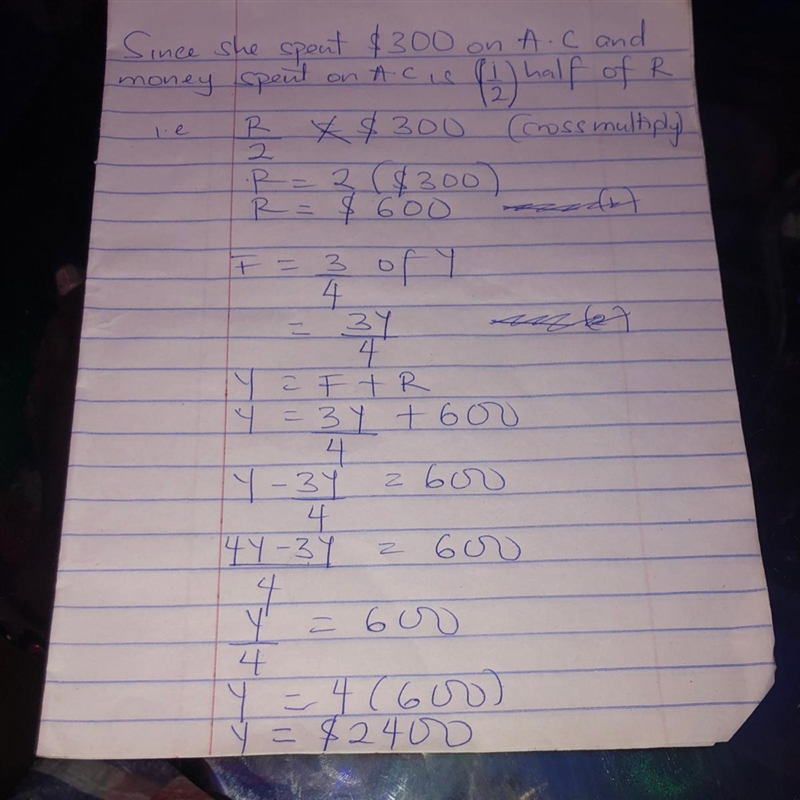 Since she spent $300 on A.C and
money spent on A.C is (1/2) half of R
i.e R/2 = $300 (cross multiply)
R = 2 ($300)
R = $600
F = 3/4 of Y
= 3Y/4
Y = F + R
Y = 3Y/4 + 600
Y - 3Y/4 = 600
4Y - 3Y/4 = 600
Y/4 = 600
Y = 4 (600)
Y = $2400